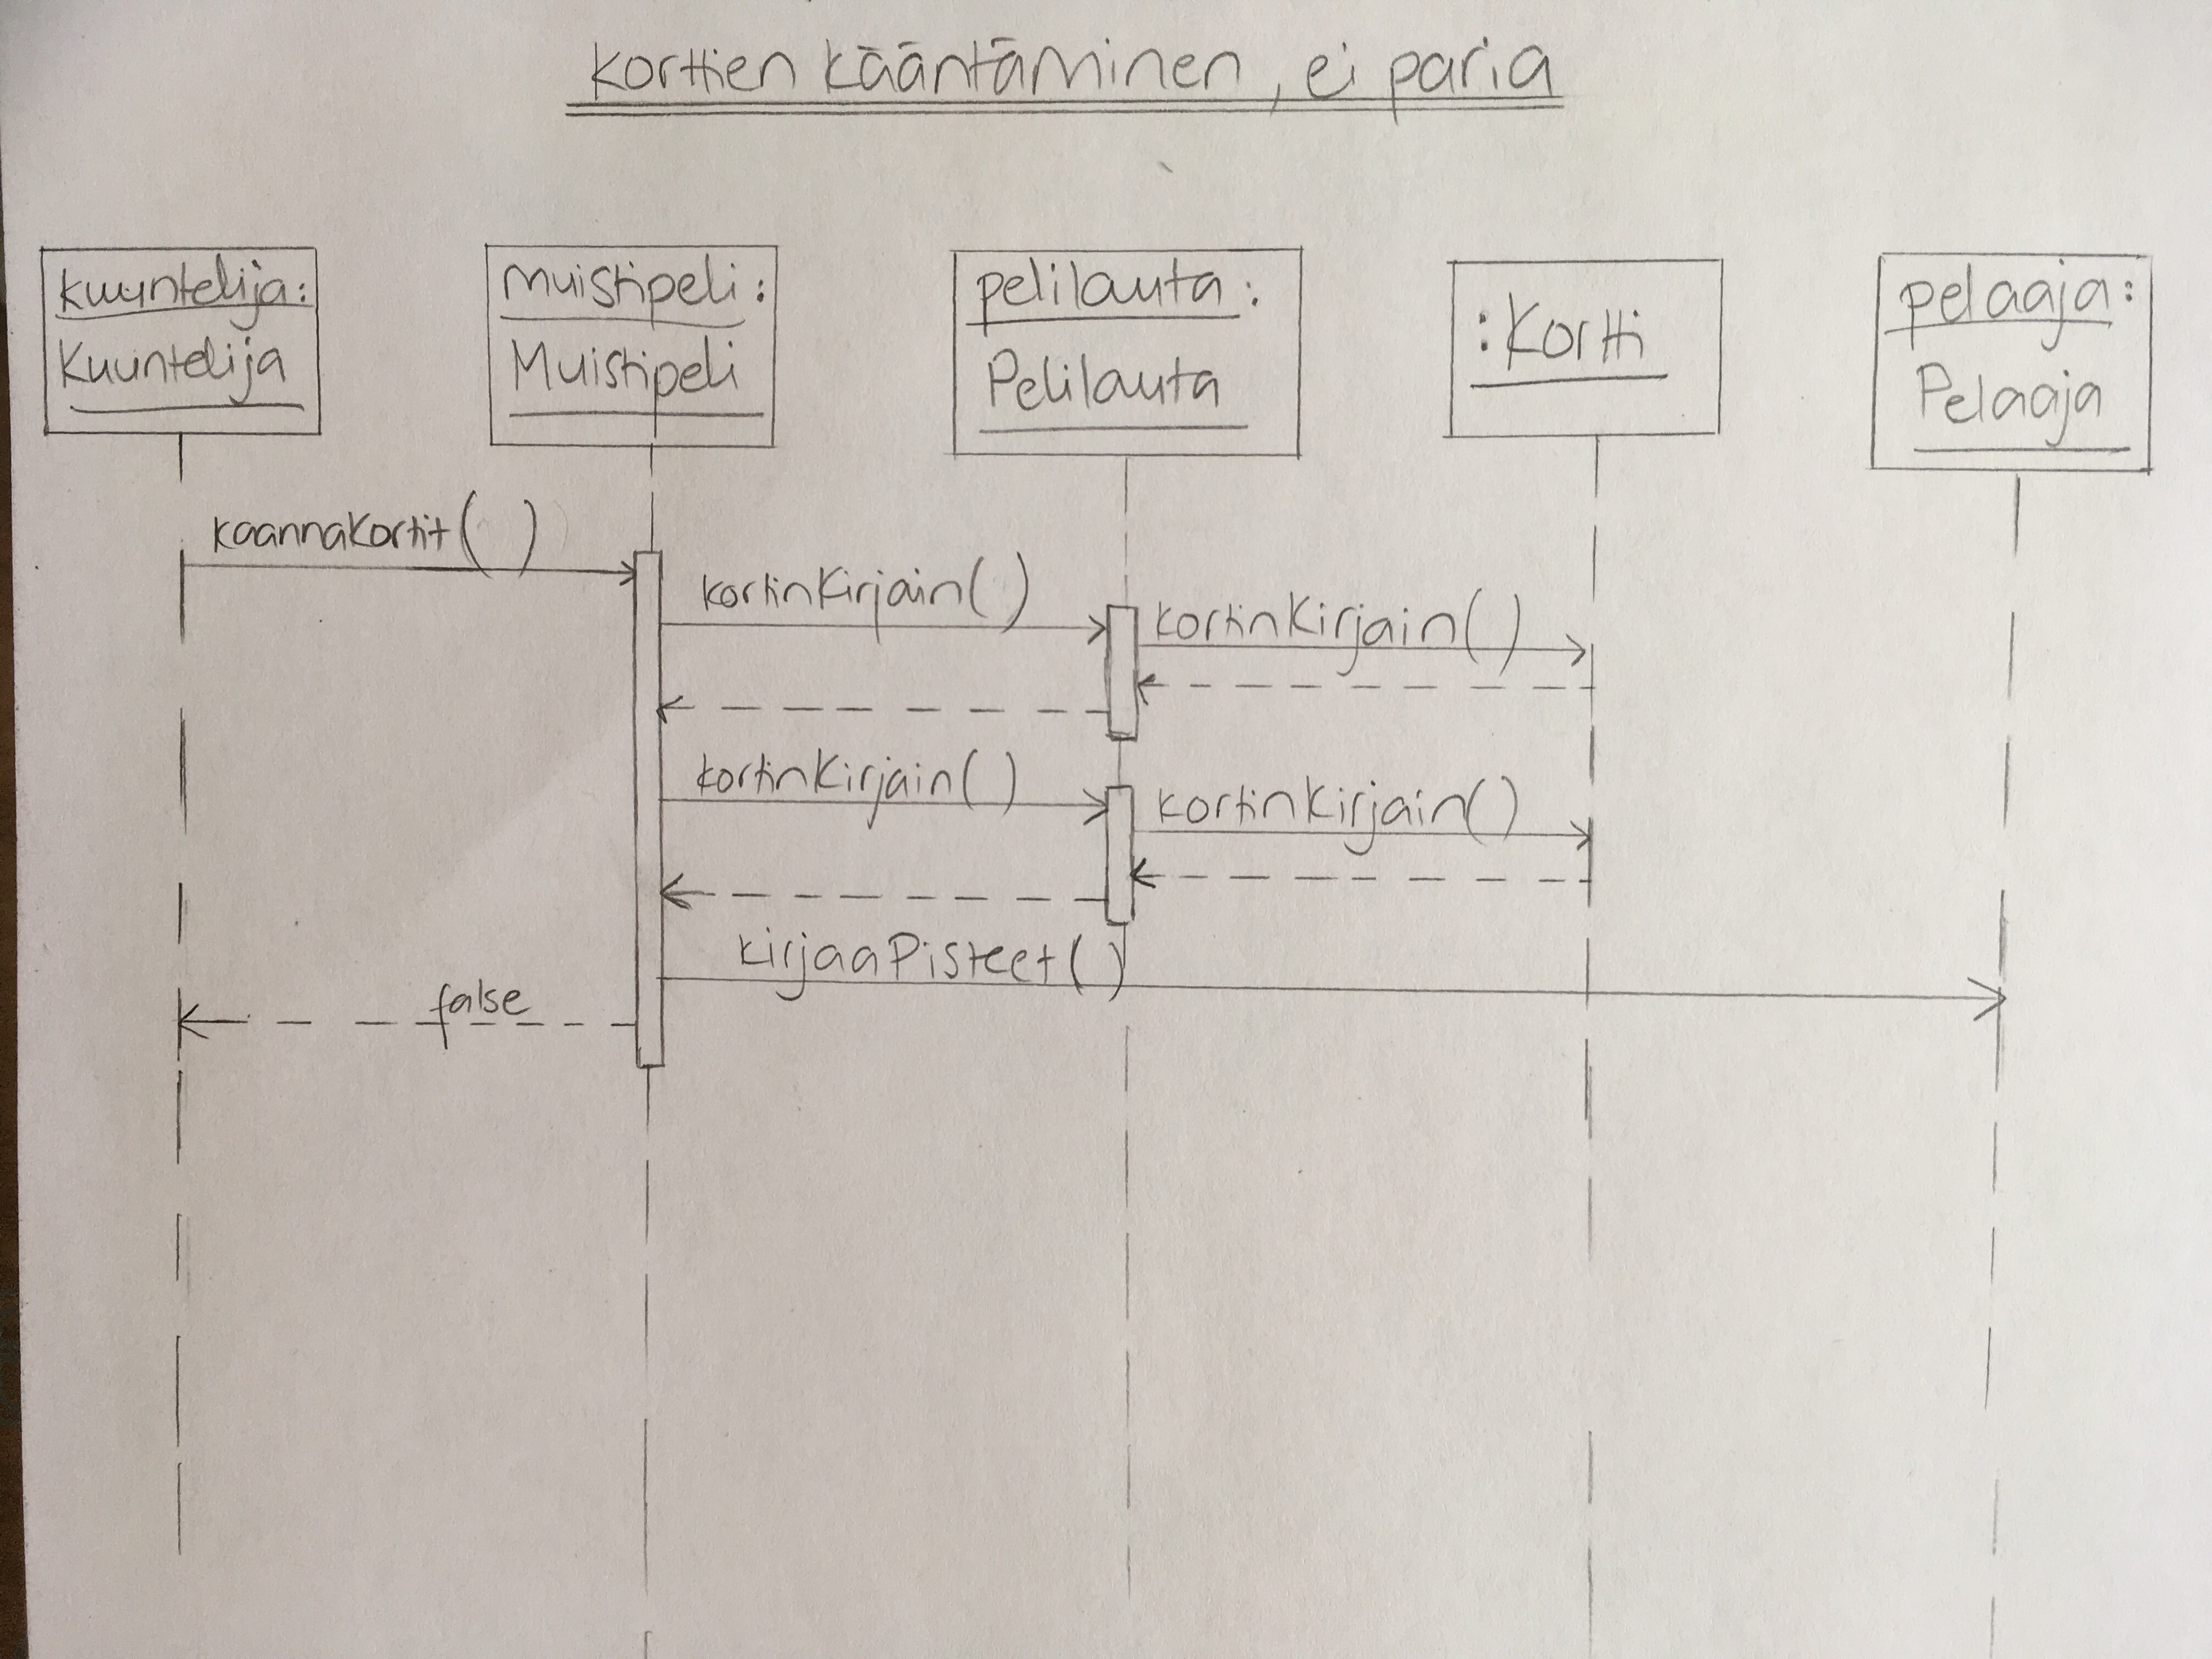 Korttien kääntäminen, ei paria
kuuntelija:
Kuuntelija
muistipeli:
Muistipeli
pelilauta:
Pelilauta
:Kortti
pelaaja:
Pelaaja
kaannaKortit( )
kortinKirjain( )
kortinKirjain( )
kortinKirjain( )
kortinKirjain( )
kirjaaPisteet( )
false